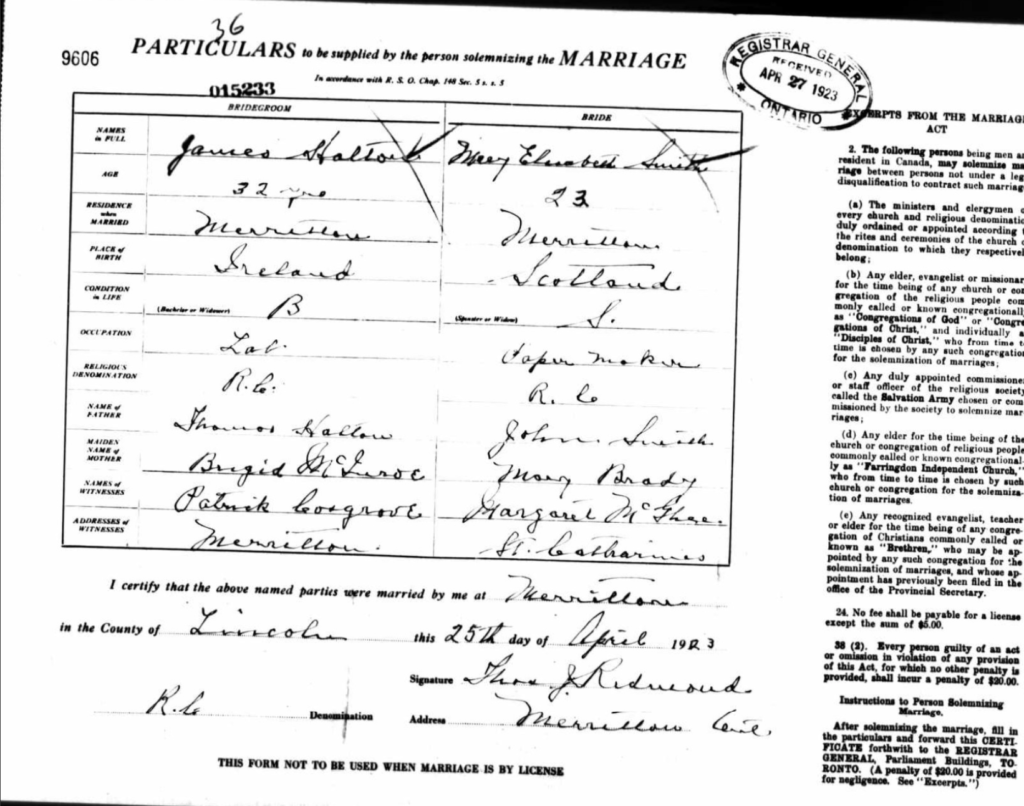 36
9606
PARTICULARS to be supplied by the person solemnizing the MARRIAGE
In accordance with R. S. O. Chap. 148 Sec. 5 s. s. 5
015233
REGISTRAR GENERAL
RECEIVED
APR 27 1923
ONTARIO
BRIDEGROOM BRIDE
NAMES in FULL James Halton Mary Elizabeth Smith
AGE 32 yrs 23
RESIDENCE when MARRIED Merritton Merritton
PLACE of BIRTH Ireland Scotland
CONDITION in LIFE (Bachelor or Widower) B (Spinster or Widow) S.
OCCUPATION Lab. Paper Maker
RELIGIOUS DENOMINATION R.C. R. C
NAME of FATHER Thomas Halton John Smith
MAIDEN NAME of MOTHER Brigid Mary Brady
NAMES of WITNESSES Patrick Cosgrove Margaret McGhee
ADDRESSES of WITNESSES Merritton St. Catharines
I certify that the above named parties were married by me at Merritton
in the County of Lincoln this 25th day of April 1923
Signature Thos J. Redmond
R.C Denomination Address Merritton Ont.
THIS FORM NOT TO BE USED WHEN MARRIAGE IS BY LICENSE
EXCERPTS FROM THE MARRIAGE
ACT
2. The following persons being men an
resident in Canada, may solemnize ma
riage between persons not under a leg
disqualification to contract such marriag
(a) The ministers and clergymen o
every church and religious denominatio
duly ordained or appointed according t
the rites and ceremonies of the church o
denomination to which they respectivel
belong;
(b) Any elder, evangelist or missionar
for the time being of any church or con
gregation of the religious people com
monly called or known congregationall
as "Congregations of God" or "Congre
gations of Christ," and individually a
"Disciples of Christ," who from time t
time is chosen by any such congregation
for the solemnization of marriages;
(c) Any duly appointed commissione
or staff officer of the religious society
called the Salvation Army chosen or com
missioned by the society to solemnize mar
riages;
(d) Any elder for the time being of the
church or congregation of religious people
commonly called or known congregational-
ly as "Farringdon Independent Church,"
who from time to time is chosen by such
church or congregation for the solemniza-
tion of marriages.
(e) Any recognized evangelist, teacher
or elder for the time being of any congre-
gation of Christians commonly called or
known as "Brethren," who may be ap-
pointed by any such congregation for the
solemnization of marriages, and whose ap-
pointment has previously been filed in the
office of the Provincial Secretary.
24. No fee shall be payable for a license
except the sum of $5.00.
38 (2). Every person guilty of an act
or omission in violation of any provision
of this Act, for which no other penalty is
provided, shall incur a penalty of $20.00.
Instructions to Person Solemnizing
Marriage.
After solemnizing the marriage, fill in
the particulars and forward this CERTI-
FICATE forthwith to the REGISTRAR
GENERAL, Parliament Buildings, TO-
RONTO. (A penalty of $20.00 is provided
for negligence. See "Excerpts.")